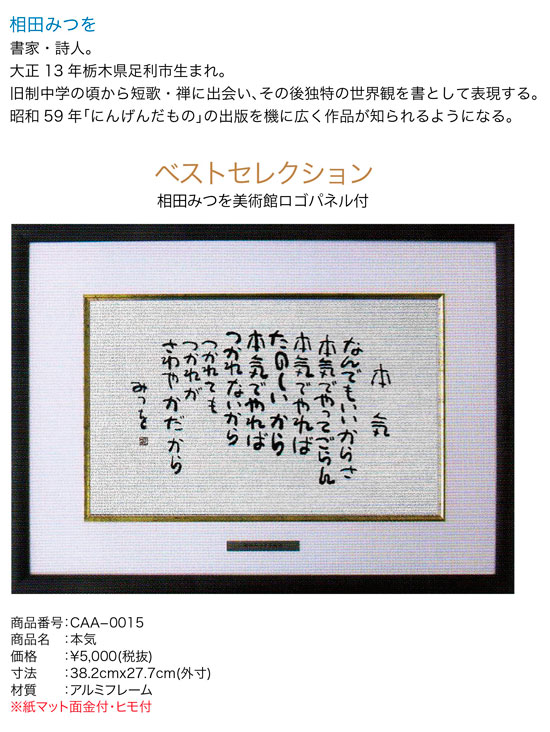 相田みつを
書家・詩人。
大正13年栃木県足利市生まれ。
旧制中学の頃から短歌・禅に出会い、その後独特の世界観を書として表現する。
昭和59年｢にんげんだもの｣の出版を機に広く作品が知られるようになる。
ベストセレクション
相田みつを美術館ロゴパネル付
本気
なんでもいいからさ
本気でやってごらん
本気でやれば
たのしいから
本気でやれば
つかれないから
つかれても
つかれが
さわやかだから
みつを
商品番号:CAA–0015
商品名　:本気
価格　　:¥5,000(税抜)
寸法　　:38.2cmx27.7cm(外寸)
材質　　:アルミフレーム
※紙マット面金付・ヒモ付